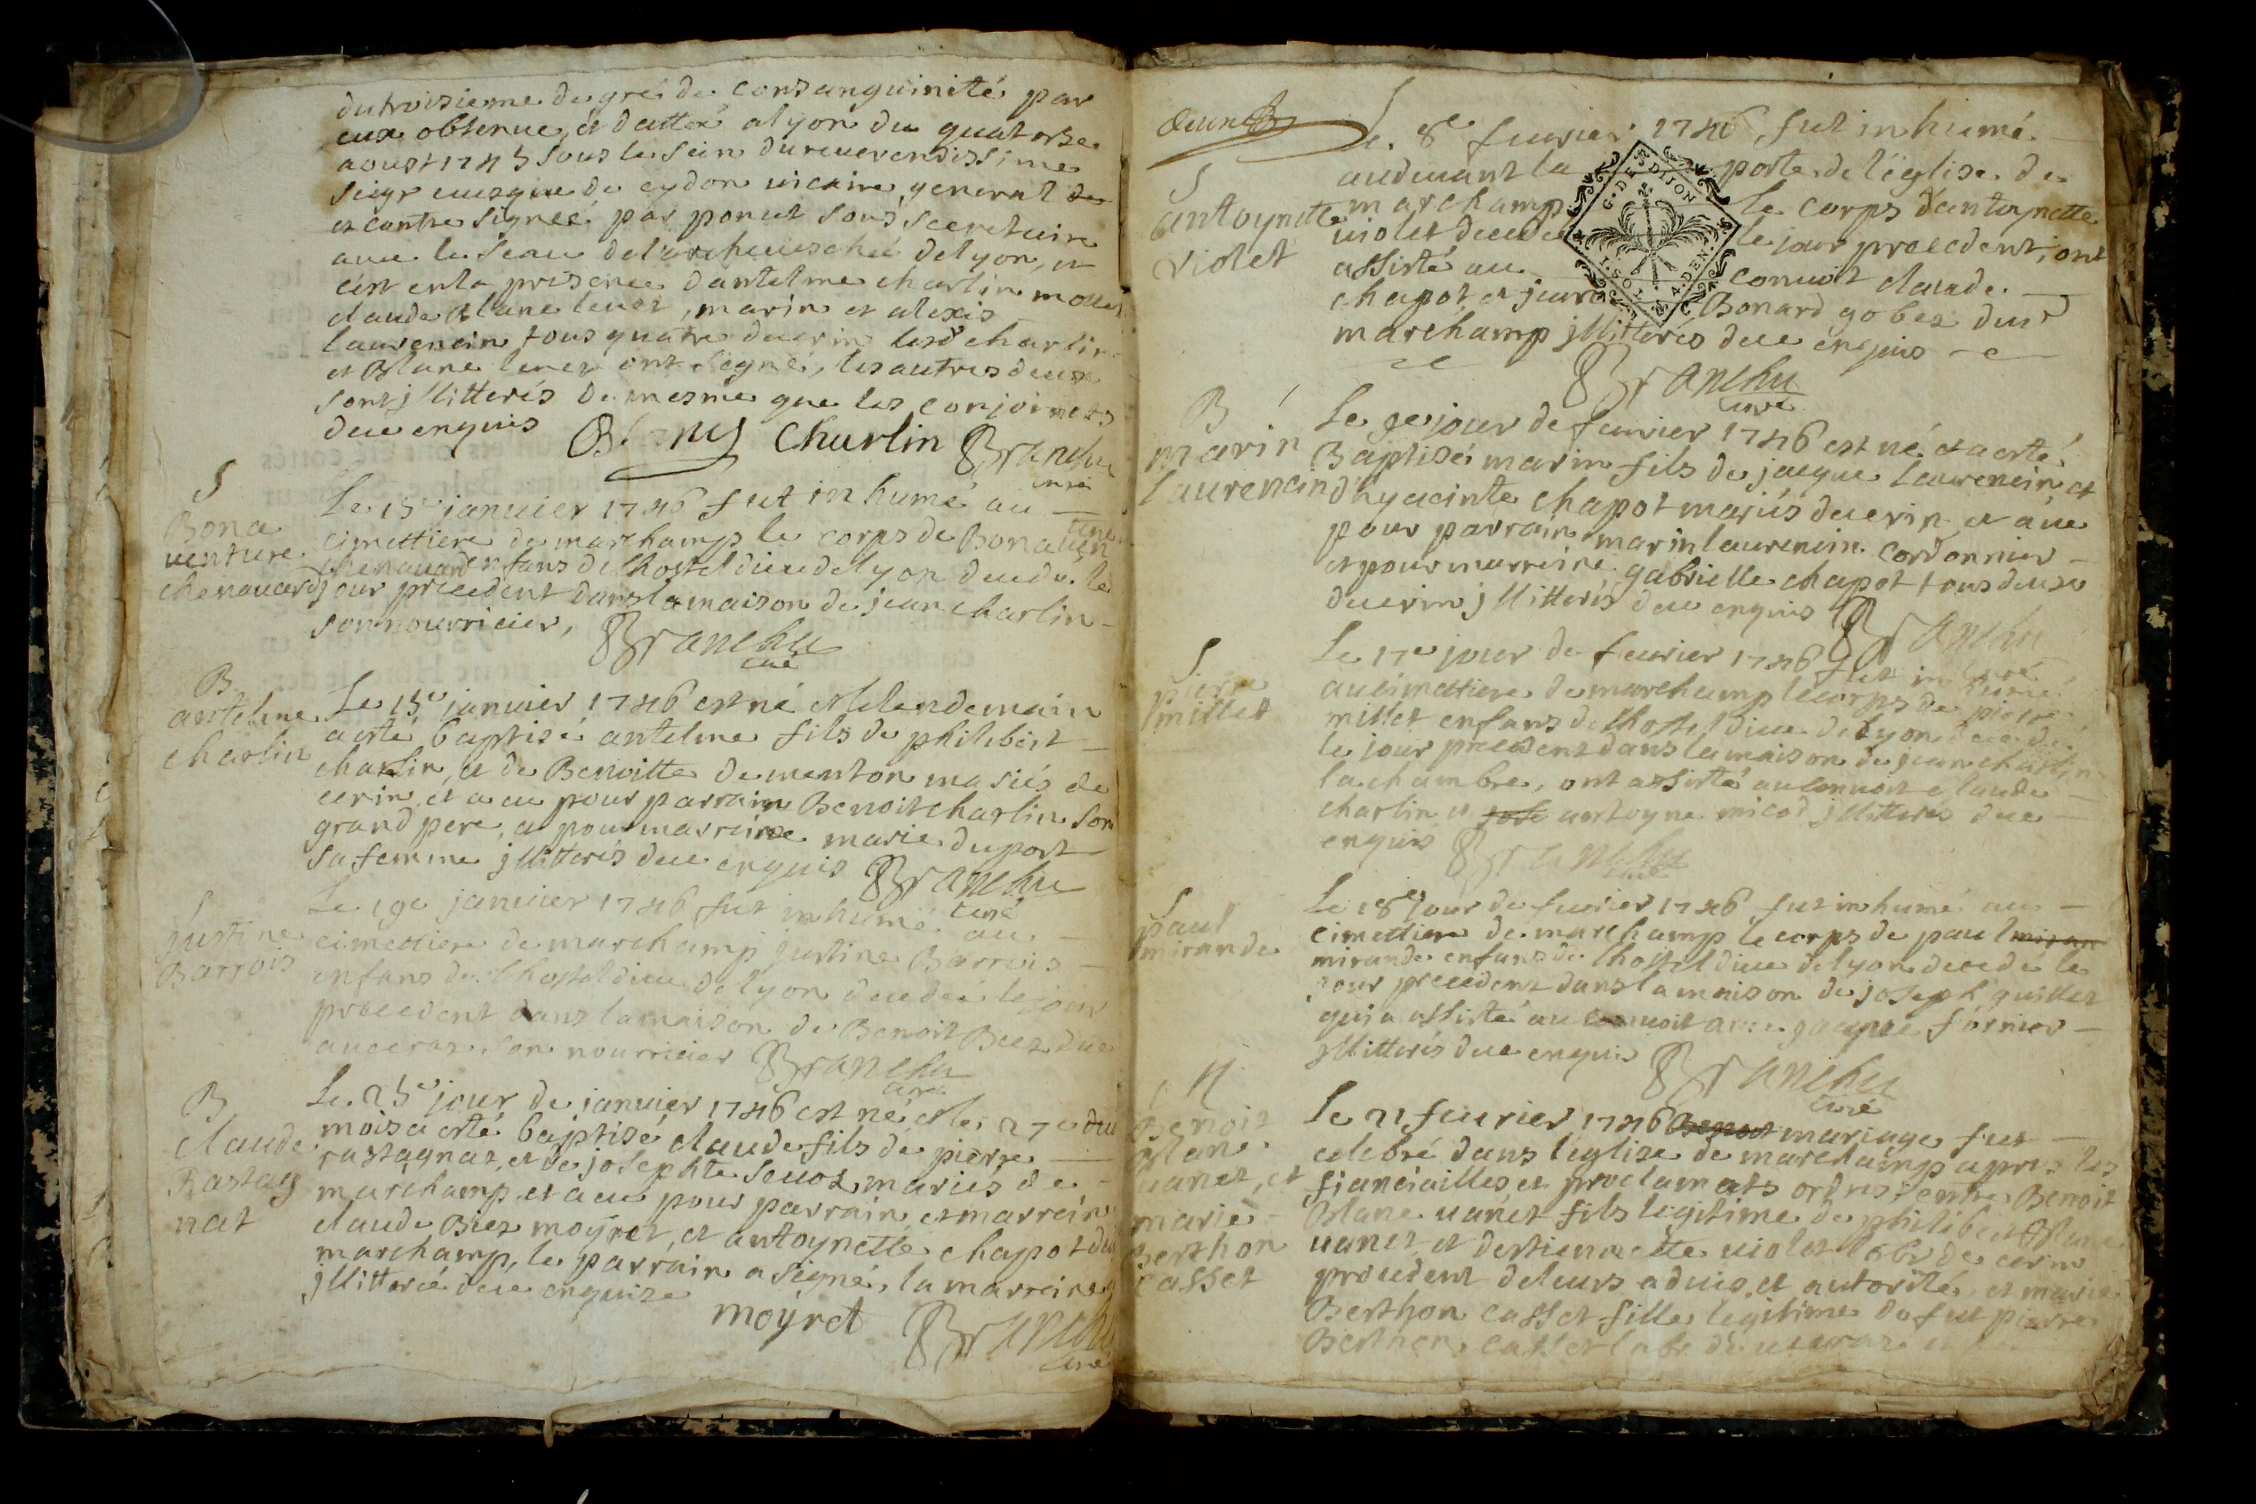 du troisieme degré de consanguinité par
eux obtenue, et dattée a lyon du quatorse
aoust 1745 sous le sein du reverendissime
evesque de cydon vicaire general
et contre signée par ponut sous secretaire
avec le seau de l'archevesché de lyon, et
c'est en la presence d'antelme charlin
claude Blanc levet, marin et alexis
laurencin tous quatre de cerin lesd charlin
et Blanc levet ont signé, les autres deux
sont jllitterés de mesme que les conjoincts
deue enquis Charlin Branchu
curé
S
Bona
venture
chenavard
Le 15e janvier 1746 fut in humé au
cimettiere de marchamp le corps de Bonaven
ture
chenavard enfans de l'hostel dieu de lyon decedé le
jour precedent dans la maison de jean charlin
son nourricier, Branchu
curé
B
antelme
charlin
Le 15e janvier 1746 est né et le lendemain
a esté baptisé antelme fils de philibert
charlin, et de Benoitte dementon mariés de
cerin, et a eu pour parrain Benoit charlin son
grand pere, et pour marreine marie duport
sa femme jllitterés deue enquis Branchu
curé
S
justine
Barrois
Le 19e janvier 1746 fut in humé au
cimettiere de marchamp justine Barrois
enfans de l'hostel dieu de lyon decedeé le jour
precedent dans la maison de Benoit Biez
son nourricier Branchu
curé
B
claude
Rastag
nat
Le 25e jour de janvier 1746 est né et le 27e du
mois a esté baptisé claude fils de pierre
rastagnat, et de josephte mariés de
marchamp, et a eu pour parrain et marreine
claude Biez moyret, et antoynette chapot du
marchamp, le parrain a signé, la marreine
jllitterée deue enquise
moyret Branchu
curé
S
antoynette
violet
Le 8e fevrier 1746 fut in humé
au devant la porte de l'église de
marchamp le corps d'antoynette
violet decedé le jour precedent, ont
assisté au convoit claude
chapot et Bonard gobez
marchamp jllitterés deue enquis
Branchu
curé
G. DE DIJON
I. SOL. 4. DEN.
B
marin
laurencin
Le 9e jour de fevrier 1746 est né et a esté
Baptisé marin fils de jacque laurencin et
d'hyacinte chapot mariés de cerin, et a eu
pour parrain marin laurencin cordonnier
et pour marreine gabrielle chapot tous deux
de cerin jllitterés deue enquis Branchu
curé
S
pierre
millet
Le 17e jour de fevrier 1746 fut in humé
au cimettiere de marchamp le corps de pierre
millet enfans de l'hostel dieu de lyon decedé
le jour precedent dans la maison de jean charlin
la chambre, ont assisté au convoit claude
charlin et antoyne micod jllitterés deue
enquis Branchu
curé
S
paul
mirande
Le 18e jour de fevrier 1746 fut in humé au
cimettiere de marchamp le corps de paul
mirande enfans de l'hostel dieu de lyon decedé le
jour precedent dans la maison de joseph quillet
qui a assisté au convoit avec
jllitterés deue enquis Branchu
curé
M
Benoit
Blanc
vanet, et
marie
Berthon
casset
Le 21 fevrier 1746 mariage fut
celebré dans l'église de marchamp apres les
fiançailles et proclamats entre Benoit
Blanc vanet fils legitime de philibert Blanc
vanet et d'estiennette violet labr de cerin
procedent de leurs advis, et autorité, et marie
Berthon casset fille legitime de fut pierre
Berthon casset labr